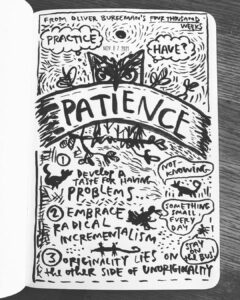 FROM OLIVER BURKEMAN'S FOUR THOUSAND
WEEKS
PRACTICE
HAVE?
NOV 17 2021
PATIENCE
① DEVELOP A
TASTE FOR HAVING
PROBLEMS.
NOT-
KNOWING
② EMBRACE
RADICAL
INCREMENTALISM
SOMETHING
SMALL
EVERY
DAY
STAY
ON
THE BUS!
③ ORIGINALITY LIES ON
the OTHER SIDE OF UNORIGINALITY